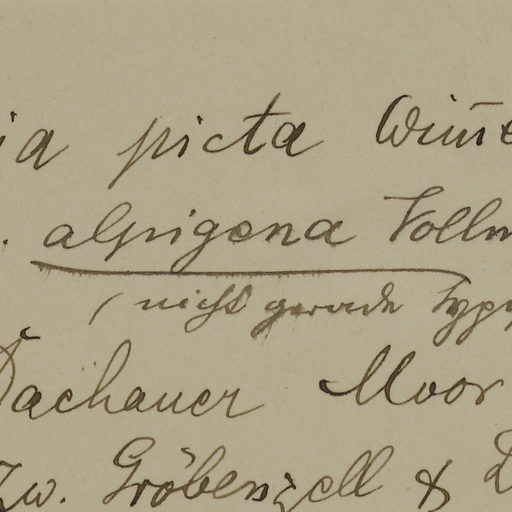 ia picta Wim̄e
. alpigena Vollm
(nicht gerade typ
Dachauer Moor
zw. Gröbenzell & D